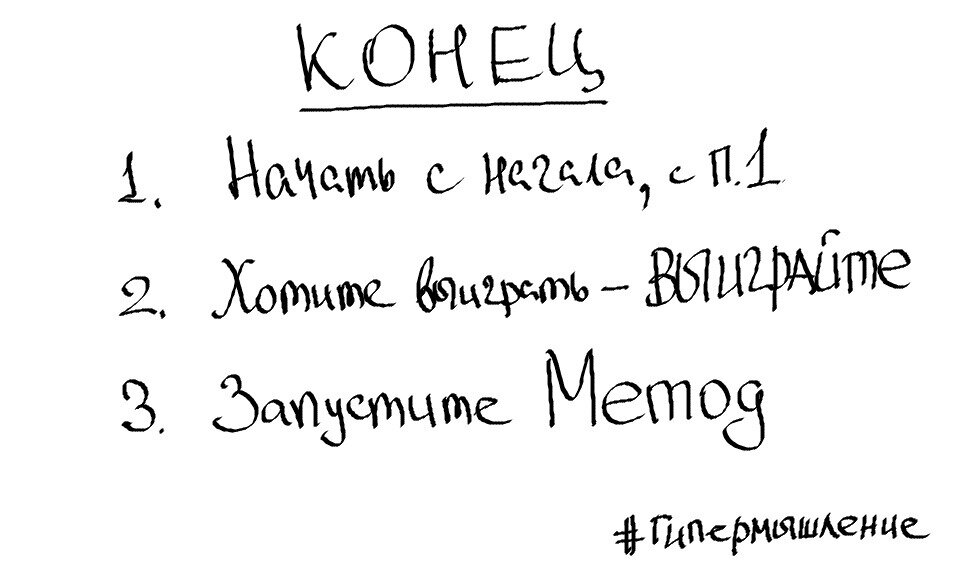 КОНЕЦ
1. Начать с начала, с п.1
2. Хотите выиграть – ВЫИГРАЙте
3. Запустите Метод
#Гипермышление